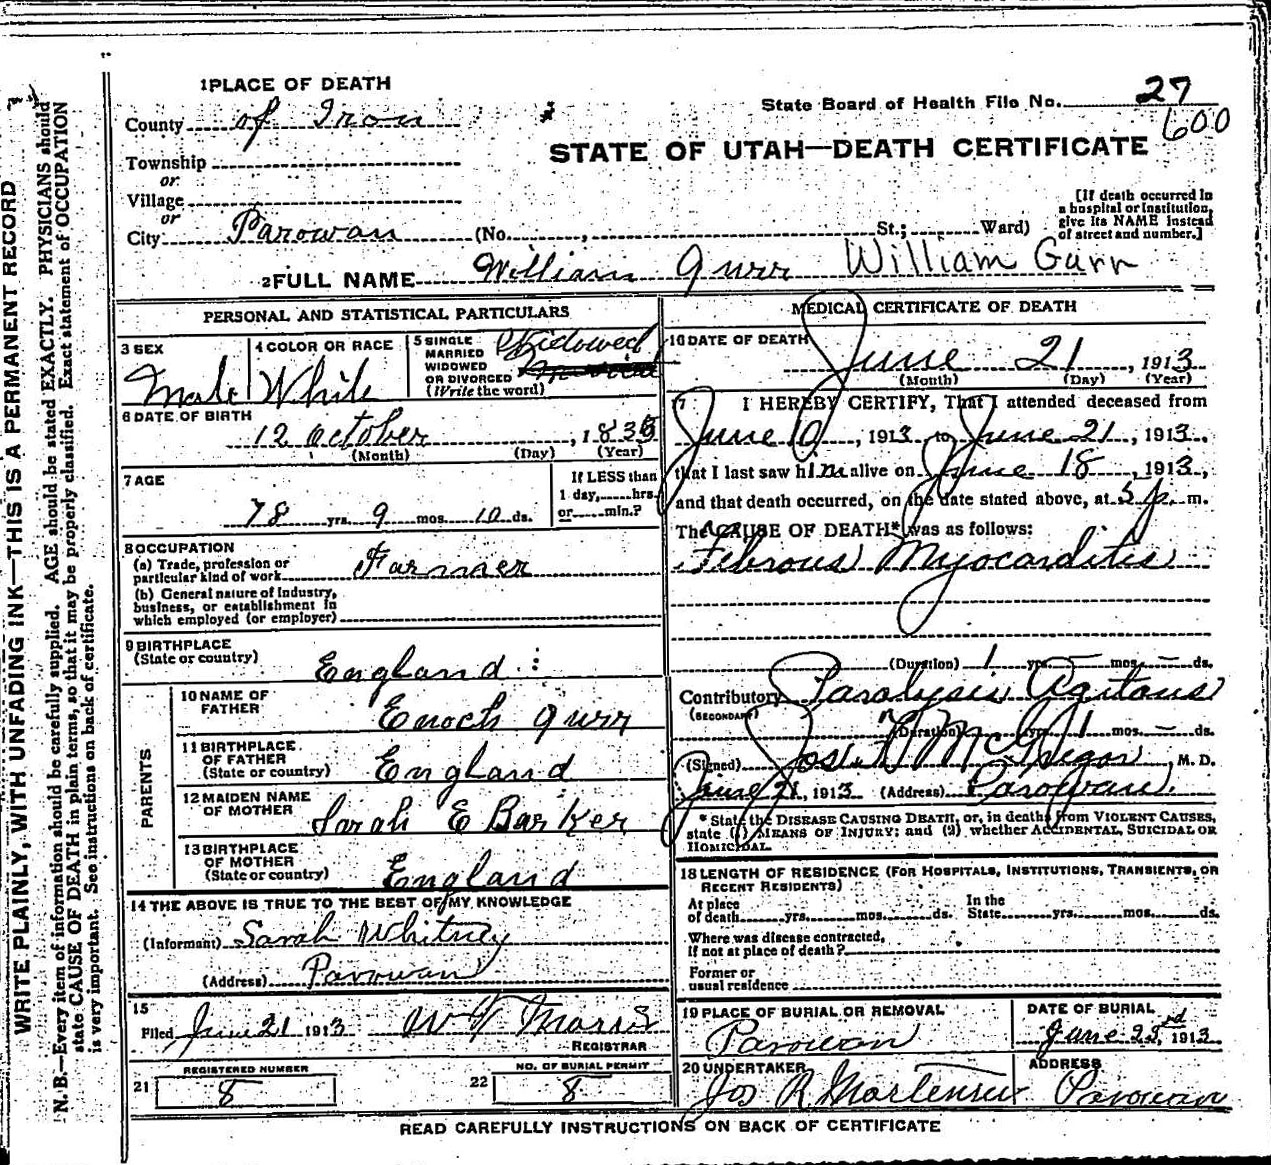 1 PLACE OF DEATH
State Board of Health File No. 27
600
County of Iron
STATE OF UTAH—DEATH CERTIFICATE
Township
or
Village
or
City Parowan (No. , St.; Ward)
[If death occurred in a hospital or institution, give its NAME instead of street and number.]
2 FULL NAME William Gurr William Gurr
PERSONAL AND STATISTICAL PARTICULARS
3 SEX Male
4 COLOR OR RACE White
5 SINGLE MARRIED WIDOWED OR DIVORCED (Write the word) Widowed
6 DATE OF BIRTH
12 October , 1835
(Month) (Day) (Year)
7 AGE
78 yrs. 9 mos. 10 ds.
If LESS than 1 day, hrs. or min.?
8 OCCUPATION
(a) Trade, profession or particular kind of work Farmer
(b) General nature of Industry, business, or establishment in which employed (or employer)
9 BIRTHPLACE
(State or country) England
PARENTS
10 NAME OF FATHER Enoch Gurr
11 BIRTHPLACE OF FATHER (State or country) England
12 MAIDEN NAME OF MOTHER Sarah E Barker
13 BIRTHPLACE OF MOTHER (State or country) England
14 THE ABOVE IS TRUE TO THE BEST OF MY KNOWLEDGE
(Informant) Sarah Whitney
(Address) Parowan
15
Filed June 21 1913 W Morris
REGISTRAR
REGISTERED NUMBER
21 8
NO. OF BURIAL PERMIT
22 8
MEDICAL CERTIFICATE OF DEATH
16 DATE OF DEATH
June 21 , 1913
(Month) (Day) (Year)
17 I HEREBY CERTIFY, That I attended deceased from
June 10 , 1913 to June 21 , 1913.
that I last saw him alive on June 18 , 1913,
and that death occurred, on the date stated above, at 5 p m.
The CAUSE OF DEATH* was as follows:
Fibrous Myocarditis
(Duration) 1 yrs. — mos. — ds.
Contributory Paralysis Agitans
(SECONDARY)
(Duration) yrs. 1 mos. — ds.
(Signed) Jos. McGregor, M. D.
June 21, 1913 (Address) Parowan.
* State the DISEASE CAUSING DEATH, or, in deaths from VIOLENT CAUSES, state (1) MEANS OF INJURY; and (2) whether ACCIDENTAL, SUICIDAL OR HOMICIDAL.
18 LENGTH OF RESIDENCE (FOR HOSPITALS, INSTITUTIONS, TRANSIENTS, OR RECENT RESIDENTS)
At place of death yrs. mos. ds. In the State yrs. mos. ds.
Where was disease contracted, If not at place of death?
Former or usual residence
19 PLACE OF BURIAL OR REMOVAL
Parowan
DATE OF BURIAL
June 23rd, 1913
20 UNDERTAKER
Jos R Mortensen
ADDRESS
Parowan
READ CAREFULLY INSTRUCTIONS ON BACK OF CERTIFICATE
WRITE PLAINLY, WITH UNFADING INK—THIS IS A PERMANENT RECORD
N. B.—Every item of information should be carefully supplied. AGE should be stated EXACTLY. PHYSICIANS should
state CAUSE OF DEATH in plain terms, so that it may be properly classified. Exact statement of OCCUPATION
is very important. See instructions on back of certificate.